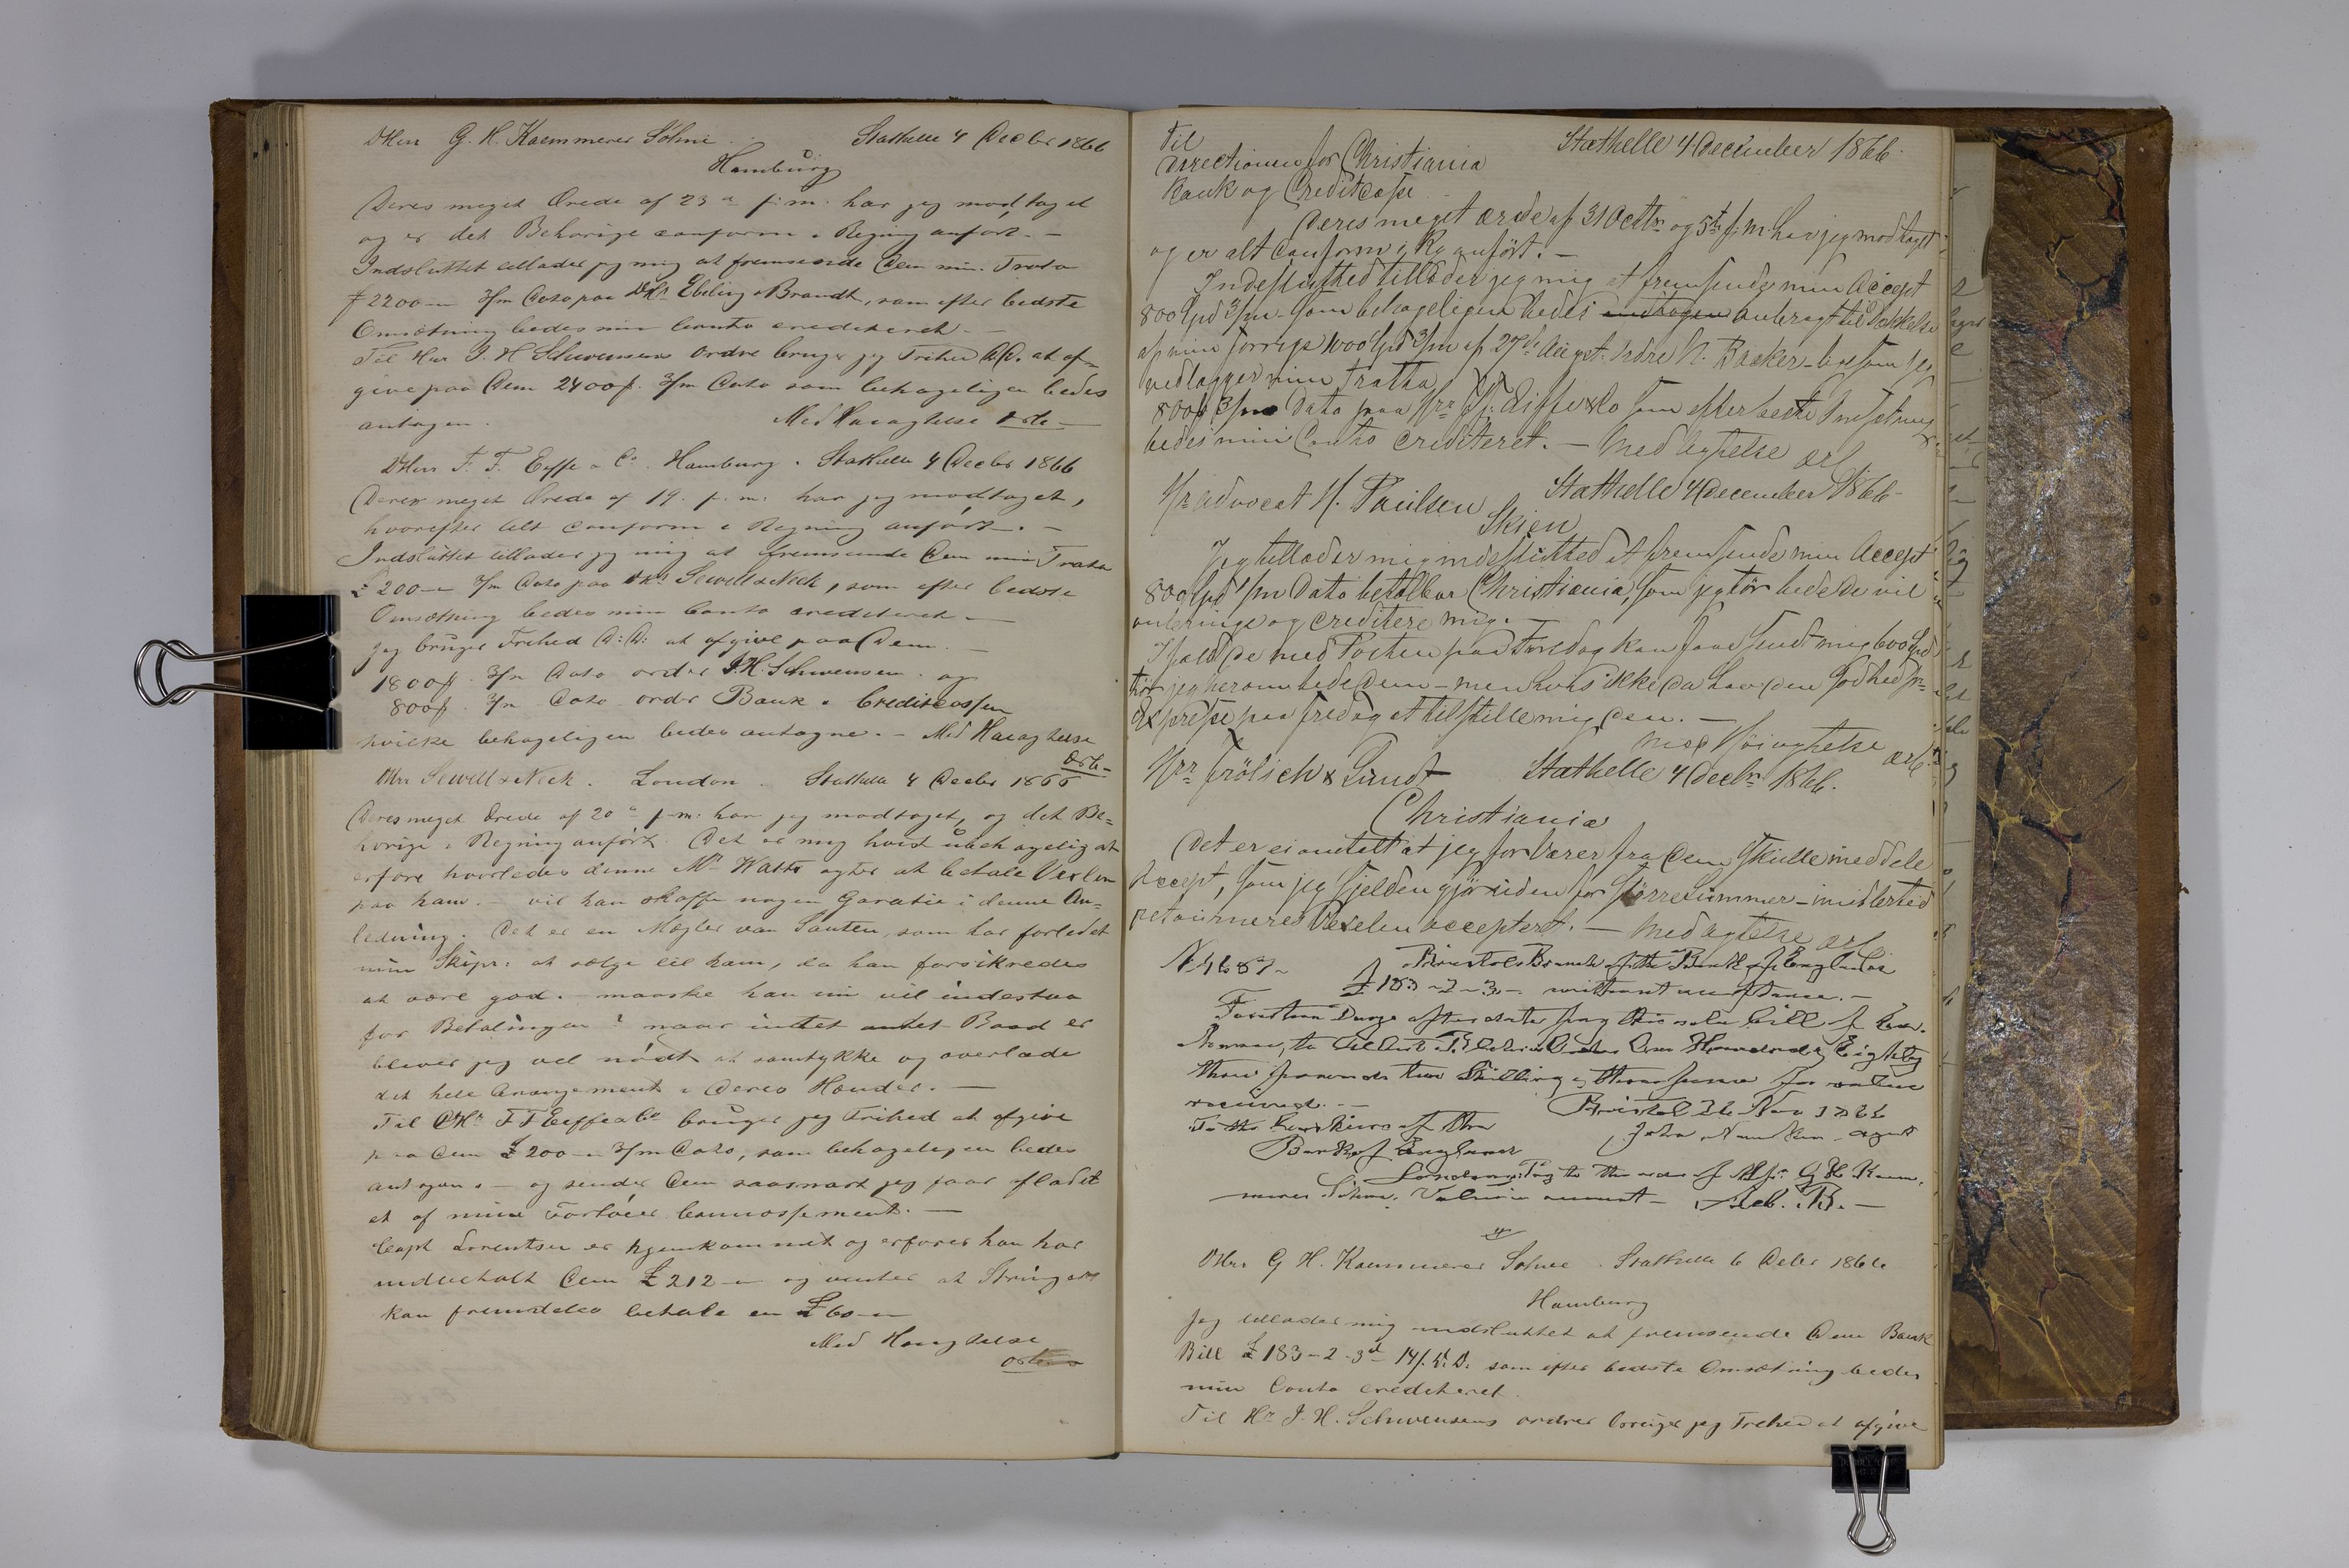 DHrr G. H. Kaemmerer Söhne. Stathelle 4 Decbr 1866
Hamburg
Deres meget Ærede af 23de f. m. har jeg modtaget
og er det Behørige conform i Regning anført. —
Indsluttet tillader jeg mig at fremsende Dem min Trata
₣ 2200 — 3/m Dato paa DHr Ebeling & Brandt, som efter bedste
Omsætning bedes min Conto crediteret. —
Til Herr J. H. Schwensens Ordre bruger jeg Frihed DD. at af=
give paa Dem 2400 ₣. 3/m Dato som behageligen bedes
antagen. Med Høiagtelse Ærb —
DHrr F. F. Eiffe & Co. Hamburg. Stathelle 4 Decbr 1866
Deres meget Ærede af 19. f. m. har jeg modtaget,
hvorefter Alt conform i Regning anført. —
Indsluttet tillader jeg mig at fremsende Dem min Trata
£ 200 — 3/m Dato paa DHrr Sewell & Neck, som efter bedste
Omsætning bedes min Conto crediteret —
Jeg bruger Frihed D: D: at afgive paa Dem. —
1800 ₣. 3/m Dato ordre J. H. Schwensen. og
800 ₣. 3/m Dato ordr Bank & Creditcassen
hvilke behageligen bedes antagne. — Med Høiagtelse
Ærb —
DHrr Sewell & Neck. London. Stathelle 4 Decbr 1866
Deres meget Ærede af 20de f. m. har jeg modtaget, og det Be=
hørige i Regning anført. Det er mig høist ubehagelig at
erfare hvorledes denne Mr Watts agter at betale Vexlen
paa ham. — vil han skaffe nogen Garatie i denne An=
ledning. Det er en Mægler van Santen, som har forledet
min Skipr: at sælge til ham, da han forsikredes
at være god. — maaske han nu vil indestaa
for Betalingen? naar intet andet Raad er
bliver jeg vel nödt at samtykke og overlade
det hele Arrangement i Deres Hænder. —
Til DHr F F Eiffe & Co bruger jeg Frihed at afgive
paa Dem £ 200 — 3/m Dato, som behageligen bedes
antagen. — og sender Dem saasnart jeg faar afladet
et af mine Fartöier Connossement. —
Capt Lorentsen er hjemkommet og erfarer han har
indbetalt Dem £ 212 — og venter at Stringer
kan fremdeles betale en £ 60 —
Med Høiagtelse
Ærb
Til
Directionen for Christiania Stathelle 4 December 1866.
Bank og Creditcasse
Deres meget ærede af 31 Octbr og 5te f. m. har jeg modtaget
og er alt conform i Rg anført. —
Indeslutted tillader jeg mig at fremsende min Accept
800 Spd 3/m — som behageligen bedes antagen anbragt til Dækkelse
af min forrige 1000 Spd 3/m af 27de August. Ordre N. Backer — ligesom jeg
vedlægger min Tratta
800 ₣ 3/m Dato paa Hrr F. F. Eiffe & Co som efter beste Omsetning
bedes min Conto Crediteret. — Med Agtelse ærb
Hr Advocat H. Paulsen Stathelle 4 December 1866 —
Skien
Jeg tillader mig indeslutted at fremsende min Accept
800 Spd 1/m Dato betalbar Christiania, som jeg tör bede De vil
anbringe og creditere mig. —
Ifald De med Posten paa Fredag kan faae sendt mig 600 Spd
tör jeg herom bede Dem — men hvis ikke da hav den Godhed pr
Expresse paa Fredag at tilstille mig dem. —
Med Höiagtelse ærb
Hrr Frölich & Lund Stathelle 4 Decbr 1866.
Christiania
Det er ei omtalt at jeg for Varer fra Dem skulle meddele
Accept, som jeg sjelden gjör uden for Större Summer — imidlertid
retourneres Vexelen accepteret. — Med agtelse ærb
Bristol Branch of the Bank of England
£ 183 — 2 — 3 — without acceptance. —
Fourteen Days after date pay this sola bill of Exch.
One Hundred & Eighty
three pounds two Shilling & three pence for value
received. — Bristol 26 Nov 1866
To the Cashiers of the agent
Bank of England
London. Pay to the order of G H Kaem=
merer Söhne. Value in account —
DHrr G. H. Kaemmerer Sohne. Stathelle 6 Decbr 1866
Hamburg
Jeg tillader mig indsluttet at fremsende Dem Bank
Bill £ 183 — 2 — 3d — 14/. D. D. som efter bedste Omsætning bedes
min Conto crediteret.
Til Hr J. H. Schwensens ordrer bruger jeg Frihed at afgive